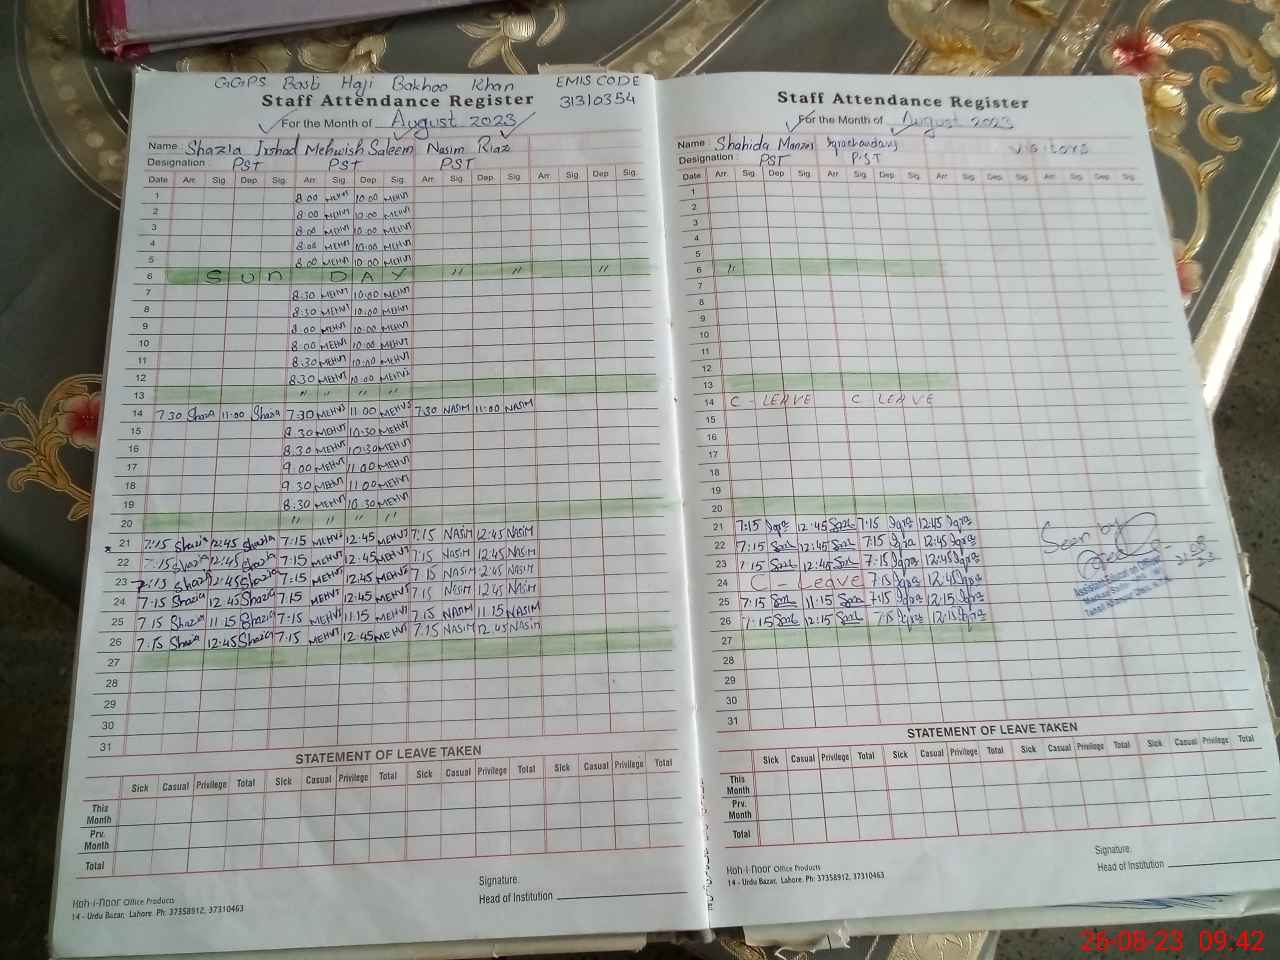 GGPS Basti Haji Bakhoo Khan EMIS CODE
Staff Attendance Register 31310354
For the Month of August 2023
Name : Shazia Irshad Mehwish Saleem Nasim Riaz
Designation : PST PST PST
Date Arr. Sig. Dep. Sig. Arr. Sig. Dep. Sig. Arr. Sig. Dep. Sig. Arr. Sig. Dep. Sig.
1 8:00 MEHVI 10:00 MEHVI
2 8:00 MEHVI 10:00 MEHVI
3 8:00 MEHVI 10:00 MEHVI
4 8:00 MEHVI 10:00 MEHVI
5 8:00 MEHVI 10:00 MEHVI
6 SUN DAY " " "
7 8:30 MEHVI 10:00 MEHVI
8 8:30 MEHVI 10:00 MEHVI
9 8:00 MEHVI 10:00 MEHVI
10 8:00 MEHVI 10:00 MEHVI
11 8:30 MEHVI 10:00 MEHVI
12 8:30 MEHVI 10:00 MEHVI
13 " " " "
14 7:30 Shazia 11:00 Shazia 7:30 MEHVI 11:00 MEHVI 7:30 NASIM 11:00 NASIM
15 8:30 MEHVI 10:30 MEHVI
16 8:30 MEHVI 10:30 MEHVI
17 9:00 MEHVI 11:00 MEHVI
18 9:30 MEHVI 11:00 MEHVI
19 8:30 MEHVI 10:30 MEHVI
20 " " " "
21 7:15 Shazia 12:45 Shazia 7:15 MEHVI 12:45 MEHVI 7:15 NASIM 12:45 NASIM
22 7:15 Shazia 12:45 Shazia 7:15 MEHVI 12:45 MEHVI 7:15 NASIM 12:45 NASIM
23 7:15 Shazia 12:45 Shazia 7:15 MEHVI 12:45 MEHVI 7:15 NASIM 12:45 NASIM
24 7:15 Shazia 12:45 Shazia 7:15 MEHVI 12:45 MEHVI 7:15 NASIM 12:45 NASIM
25 7:15 Shazia 11:15 Shazia 7:15 MEHVI 11:15 MEHVI 7:15 NASIM 11:15 NASIM
26 7:15 Shazia 12:45 Shazia 7:15 MEHVI 12:45 MEHVI 7:15 NASIM 12:45 NASIM
27
28
29
30
31
STATEMENT OF LEAVE TAKEN
Sick Casual Privilege Total Sick Casual Privilege Total Sick Casual Privilege Total Sick Casual Privilege Total
This Month
Prv. Month
Total
Signature.
Head of Institution
Koh-i-noor Office Products
14 - Urdu Bazar, Lahore. Ph: 37358912, 37310463
Staff Attendance Register
For the Month of August 2023
Name : Shahida Manzoor Iqra chaudary visitors
Designation : PST PST
Date Arr. Sig. Dep. Sig. Arr. Sig. Dep. Sig. Arr. Sig. Dep. Sig. Arr. Sig. Dep. Sig.
1
2
3
4
5
6 "
7
8
9
10
11
12
13
14 C - LEAVE C LEAVE
15
16
17
18
19
20
21 7:15 12:45 7:15 Iqra 12:45 Iqra
22 7:15 12:45 7:15 Iqra 12:45 Iqra
23 7:15 12:45 7:15 Iqra 12:45 Iqra
24 C - Leave 7:15 Iqra 12:45 Iqra
25 7:15 11:15 7:15 Iqra 12:15 Iqra
26 7:15 12:15 7:15 Iqra 12:15 Iqra
27
28
29
30
31
Seen by
STATEMENT OF LEAVE TAKEN
Sick Casual Privilege Total Sick Casual Privilege Total Sick Casual Privilege Total Sick Casual Privilege Total
This Month
Prv. Month
Total
Signature.
Head of Institution
Koh-i-noor Office Products
14 - Urdu Bazar, Lahore. Ph: 37358912, 37310463
26-08-23 09:42